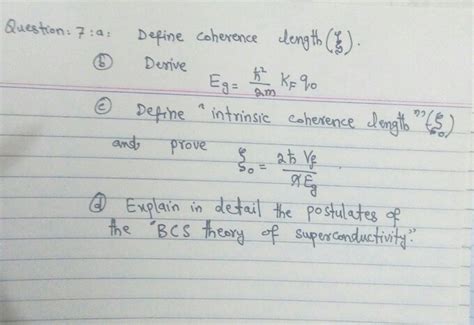 Question: 7:a: Define coherence length (ξ).
ⓑ Derive
Eg = ħ²/2m KF q0
ⓒ Define "intrinsic coherence length" (ξ0)
and prove
ξ0 = 2ħ Vf / πEg.
ⓓ Explain in detail the postulates of
the "BCS theory of superconductivity."